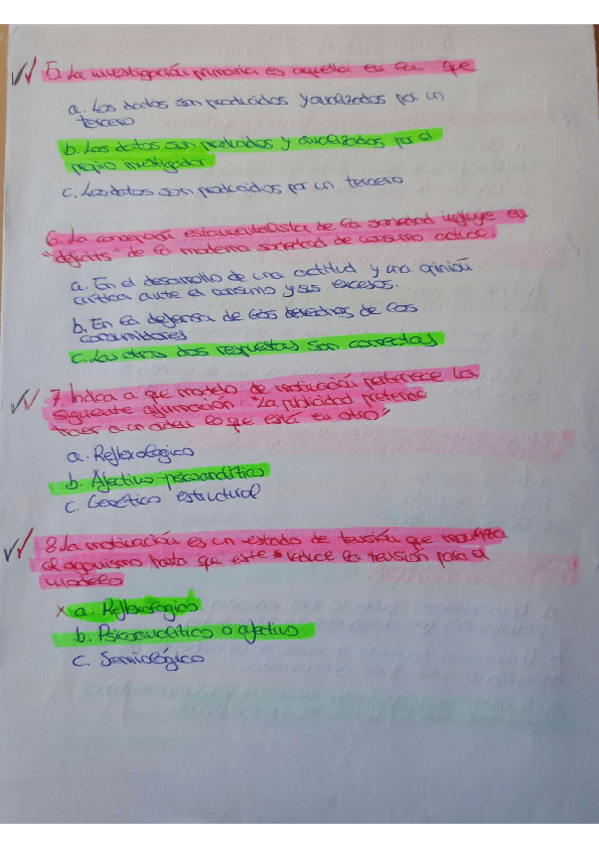 5. La investigación primaria es aquella en la que
a. Los datos son producidos y analizados por un
tercero
b. Los datos son producidos y analizados por el
propio investigador
c. Los datos son producidos por un tercero
6. La concepción estamentalista de la sociedad influye en
"déficits" de la moderna sociedad de consumo
a. En el desarrollo de una actitud y una opinión
crítica ante el consumo y sus excesos.
b. En la defensa de los derechos de los
consumidores
c. Las otras dos respuestas son correctas
7. Indica a que modelo de motivación pertenece la
siguiente afirmación: "La publicidad pretende
lo que está en otro"
a. Reflexológico
b. Afectivo-psicoanalítico
c. Genético estructural
8. La motivación es un estado de tensión que moviliza
al organismo hasta que este reduce la tensión para el
modelo
x a. Reflexológico
b. Psicoanalítico o afectivo
c. Semiológico